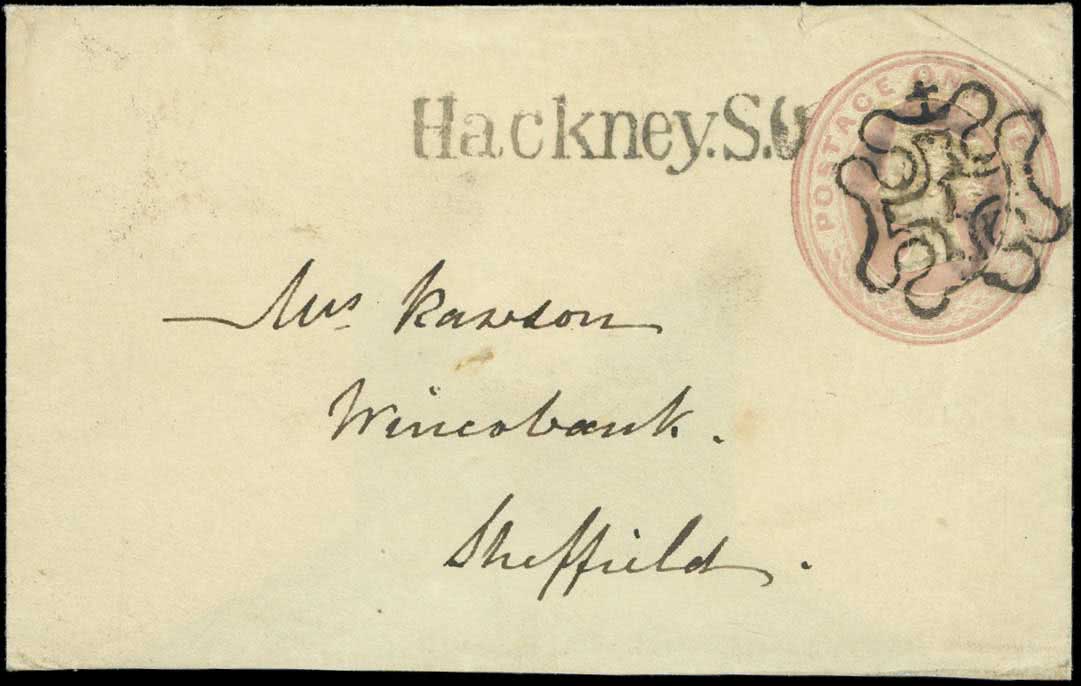 Hackney.S.O
POSTAGE ONE
Mrs Rawson
Wincobank.
Sheffield.